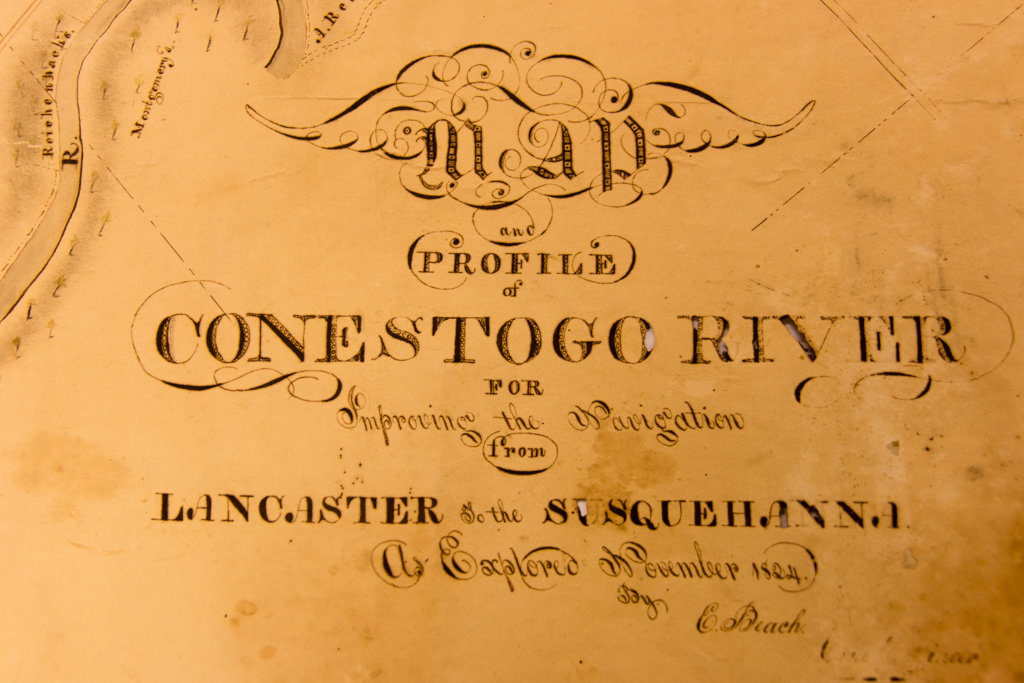 Reichenbach's.
R.
Montgomery's.
MAP
and
PROFILE
of
CONESTOGO RIVER
FOR
Improving the Navigation
from
LANCASTER To the SUSQUEHANNA.
As Explored November 1824.
By
E. Beach.